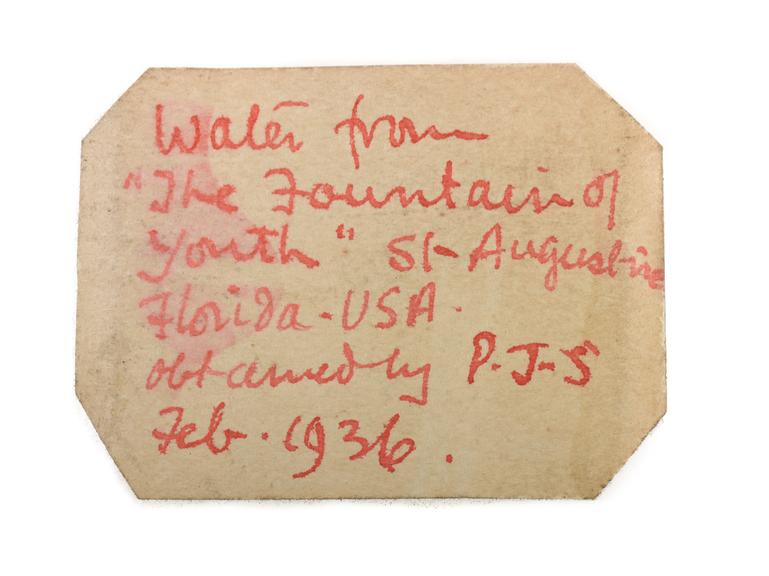 Water from
"The Fountain of
Youth" St-Augustine
Florida-USA.
obtained by P-J-S
Feb. 1936.